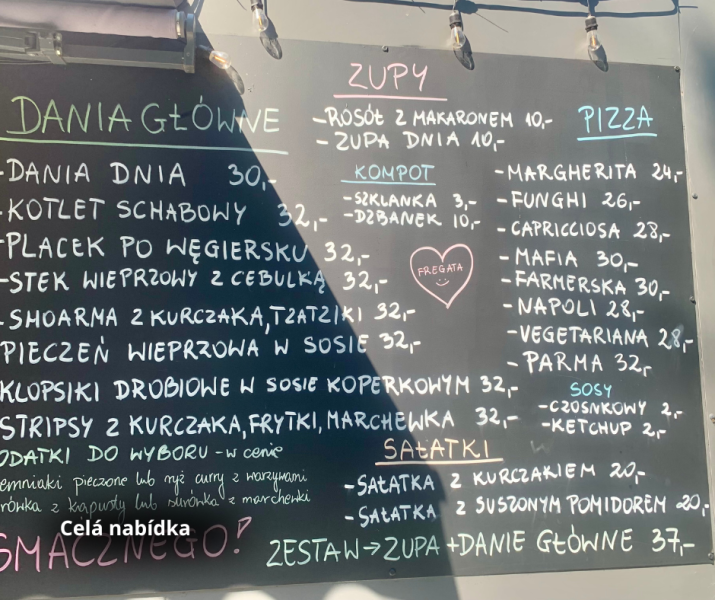 DANIA GŁÓWNE
-DANIA DNIA 30,-
-KOTLET SCHABOWY 32,-
-PLACEK PO WĘGIERSKU 32,-
-STEK WIEPRZOWY Z CEBULKĄ 32,-
-SHOARMA Z KURCZAKA, TZATZIKI 32,-
PIECZEŃ WIEPRZOWA W SOSIE 32,-
KLOPSIKI DROBIOWE W SOSIE KOPERKOWYM 32,-
STRIPSY Z KURCZAKA, FRYTKI, MARCHEWKA 32,-
ODATKI DO WYBORU - w cenie
emniaki pieczone lub ryż curry z warzywami
rówka z kapusty lub surówka z marchewki
SMACZNEGO!
ZUPY
-ROSÓŁ Z MAKARONEM 10,-
- ZUPA DNIA 10,-
KOMPOT
-SZKLANKA 3,-
-DZBANEK 10,-
FREGATA
PIZZA
-MARGHERITA 24,-
-FUNGHI 26,-
-CAPRICCIOSA 28,-
-MAFIA 30,-
-FARMERSKA 30,-
-NAPOLI 28,-
-VEGETARIANA 28,-
-PARMA 32,-
SOSY
-CZOSNKOWY 2,-
-KETCHUP 2,-
SAŁATKI
-SAŁATKA Z KURCZAKIEM 20,-
-SAŁATKA Z SUSZONYM POMIDOREM 20,-
ZESTAW→ZUPA+DANIE GŁÓWNE 37,-
Celá nabídka